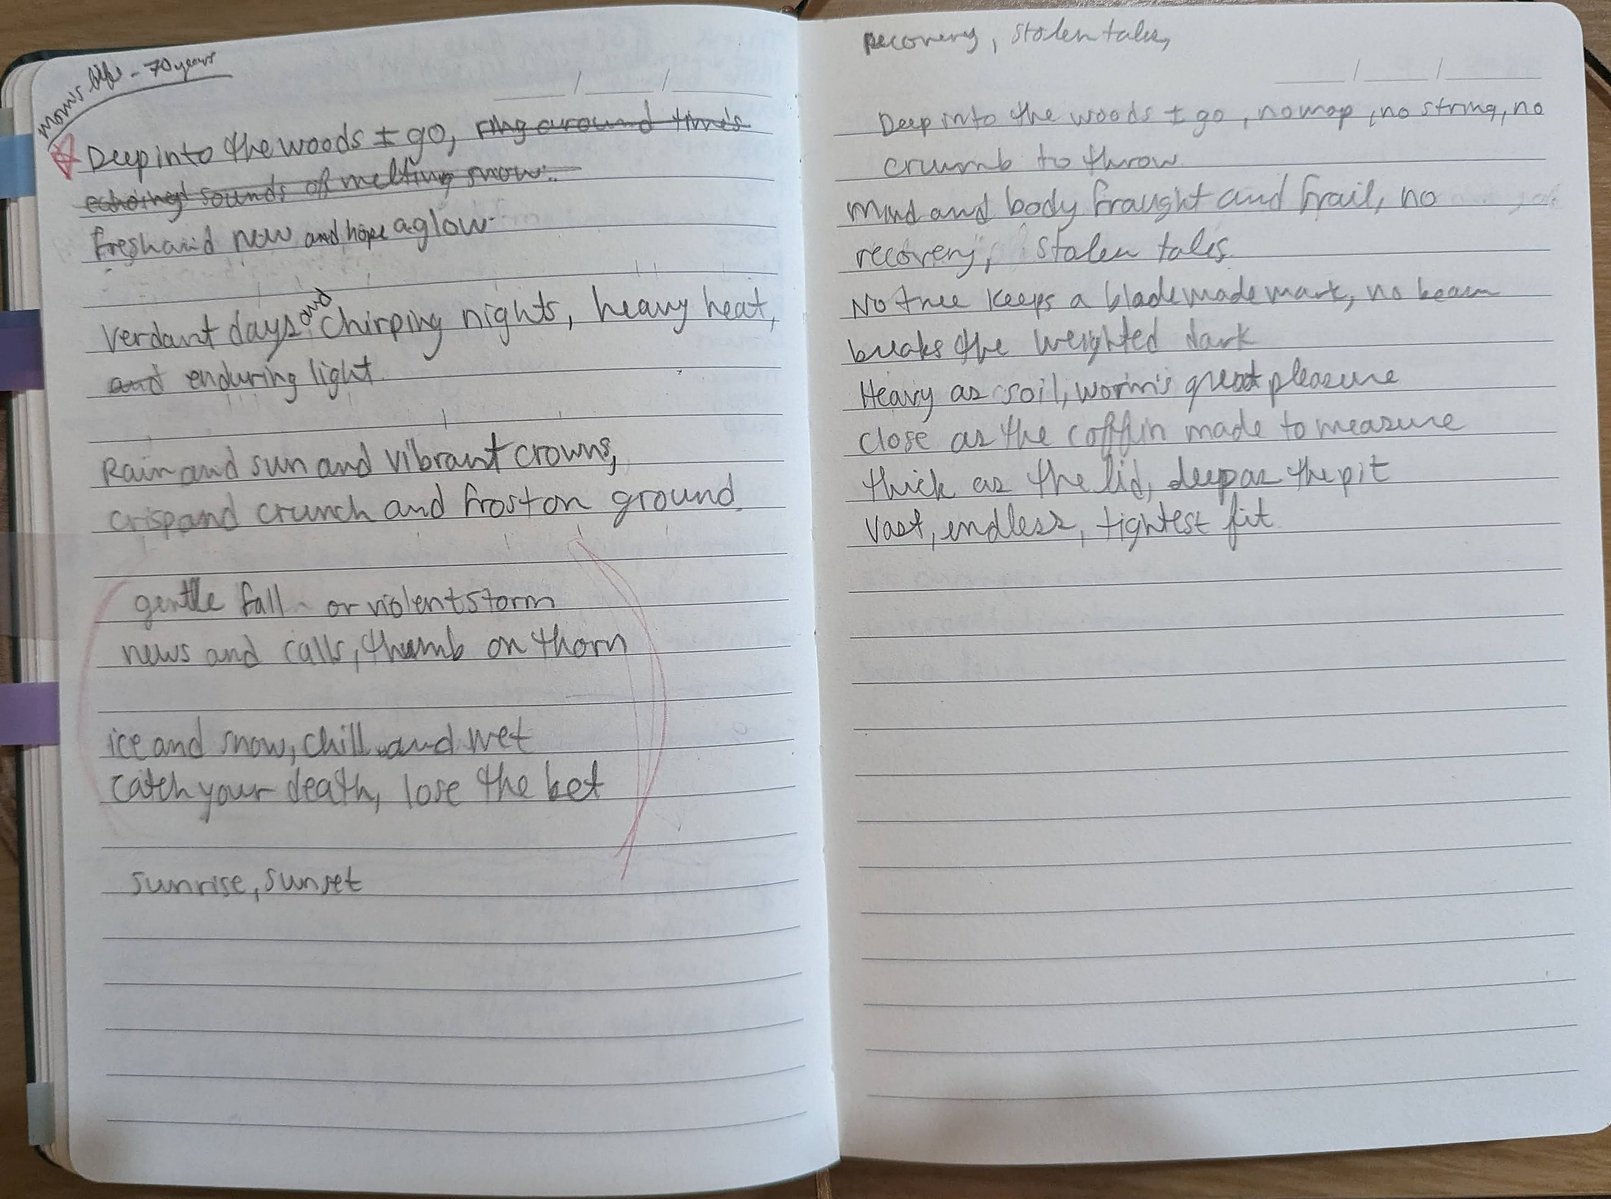 Mom's life - 70 years
/ /
Deep into the woods I go, ring around time's
echoing sounds of melting snow.
fresh and new and hope aglow
Verdant days and chirping nights, heavy heat,
and enduring light
Rain and sun and vibrant crowns,
crisp and crunch and frost on ground.
gentle fall or violent storm
news and calls, thumb on thorn
ice and snow, chill and wet
catch your death, lose the bet
sunrise, sunset
recovery, stolen tales,
/ /
Deep into the woods I go, no map, no string, no
crumb to throw
Mind and body fraught and frail, no
recovery, stolen tales
No tree keeps a blade made mark, no beam
breaks the weighted dark
Heavy as soil, worm's great pleasure
close as the coffin made to measure
thick as the lid, deep as the pit
Vast, endless, tightest fit